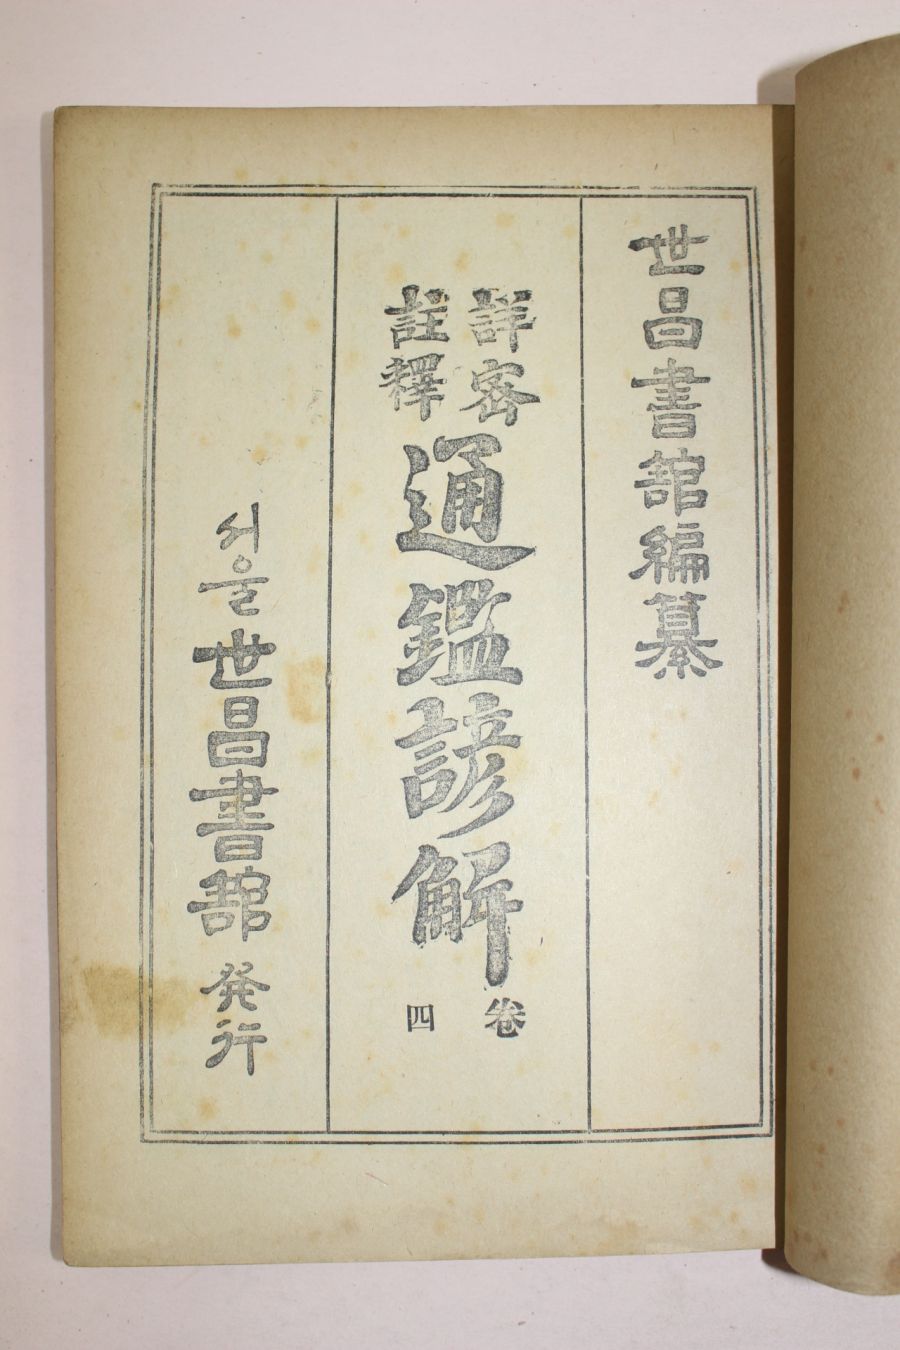 世昌書舘編纂
詳密
註釋
通鑑諺解
卷四
서울世昌書舘発行